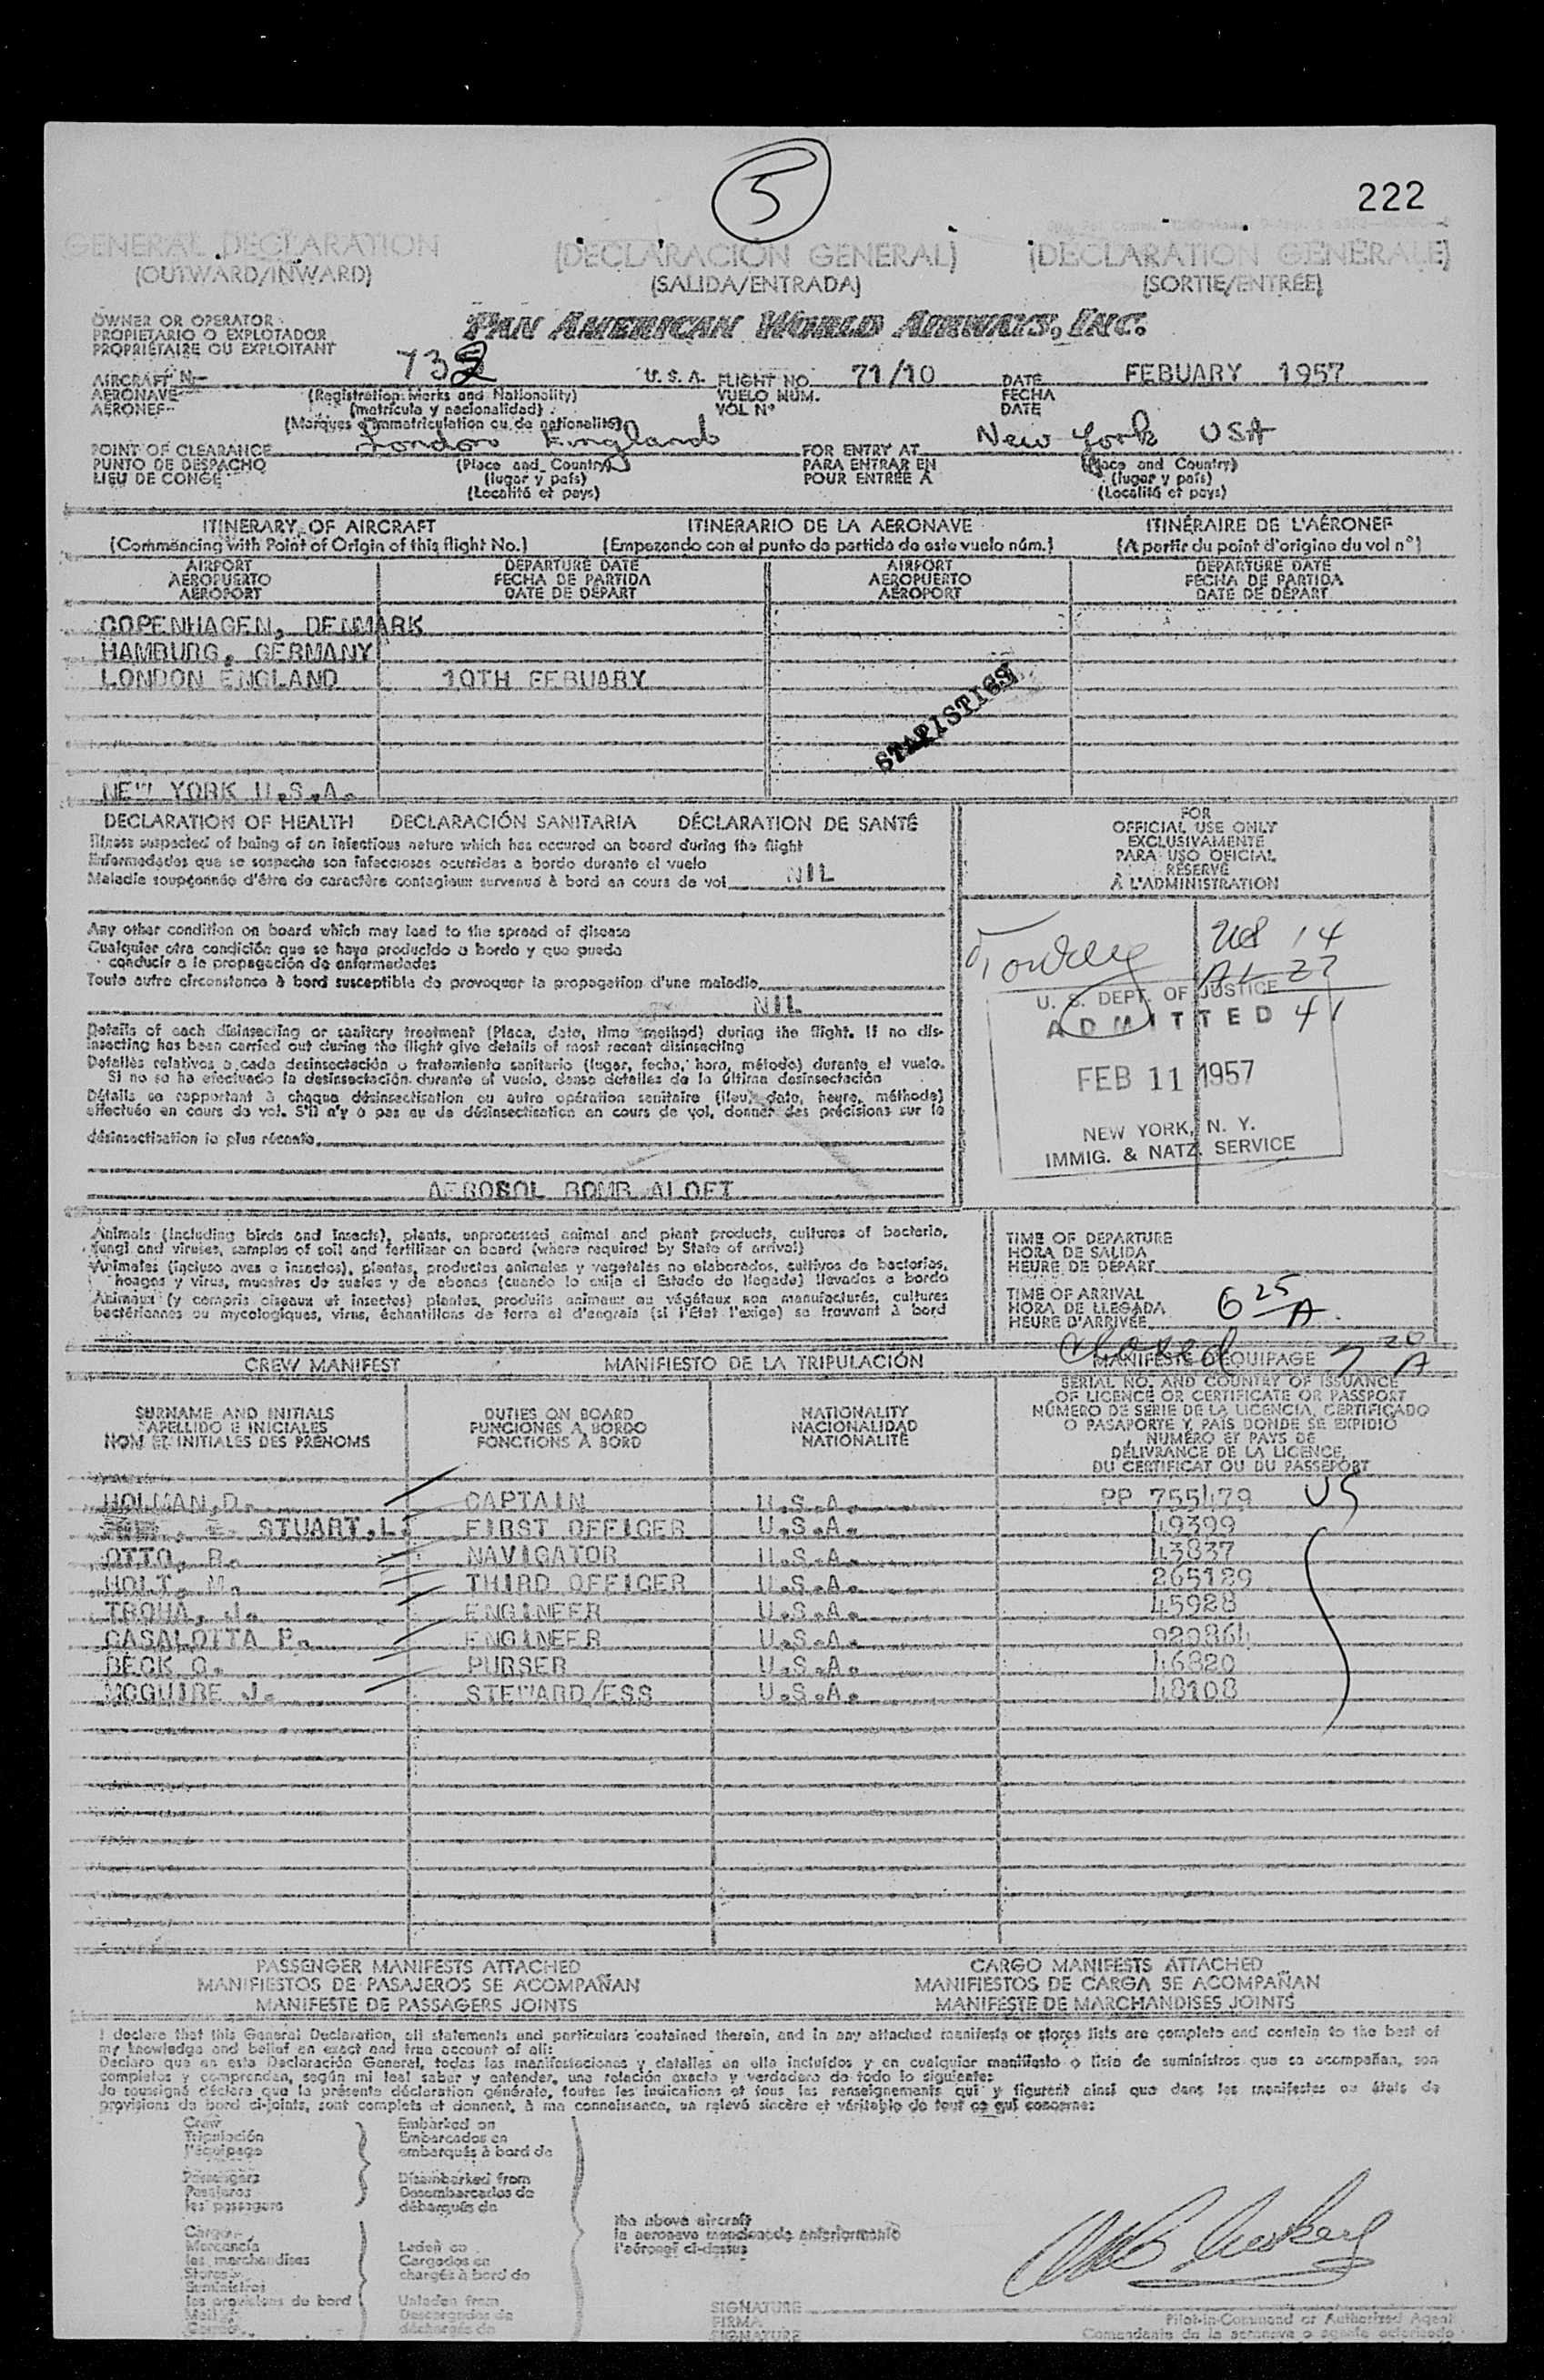 5
222
GENERAL DECLARATION (DECLARACIÓN GENERAL) (DÉCLARATION GÉNÉRALE)
(OUTWARD/INWARD) (SALIDA/ENTRADA) (SORTIE/ENTRÉE)
OWNER OR OPERATOR
PROPIETARIO O EXPLOTADOR
PROPRIÉTAIRE OU EXPLOITANT
PAN AMERICAN WORLD AIRWAYS, INC.
AIRCRAFT N- 732 U. S. A. FLIGHT NO. 71/10 DATE FEBUARY 1957
AERONAVE (Registration Marks and Nationality) VUELO NÚM. FECHA
AÉRONEF (matrícula y nacionalidad) VOL Nº DATE
(Marques d'immatriculation ou de nationalité)
POINT OF CLEARANCE London England FOR ENTRY AT New York USA
PUNTO DE DESPACHO (Place and Country) PARA ENTRAR EN (Place and Country)
LIEU DE CONGÉ (lugar y país) POUR ENTRÉE À (lugar y país)
(Localité et pays) (Localité et pays)
ITINERARY OF AIRCRAFT ITINERARIO DE LA AERONAVE ITINÉRAIRE DE L'AÉRONEF
(Commencing with Point of Origin of this flight No.) (Empezando con el punto de partida de este vuelo núm.) (A partir du point d'origine du vol nº)
AIRPORT DEPARTURE DATE AIRPORT DEPARTURE DATE
AEROPUERTO FECHA DE PARTIDA AEROPUERTO FECHA DE PARTIDA
AÉROPORT DATE DE DÉPART AÉROPORT DATE DE DÉPART
COPENHAGEN, DENMARK
HAMBURG, GERMANY
LONDON ENGLAND 10TH FEBUARY
STATISTICS
NEW YORK U.S.A.
DECLARATION OF HEALTH DECLARACIÓN SANITARIA DÉCLARATION DE SANTÉ
Illness suspected of being of an infectious nature which has occured on board during the flight
Enfermedades que se sospecha son infecciosas ocurridas a bordo durante el vuelo
Maladie soupçonnée d'être de caractère contagieux survenue à bord en cours de vol NIL
Any other condition on board which may lead to the spread of disease
Cualquier otra condición que se haya producido a bordo y que pueda
conducir a la propagación de enfermedades
Toute autre circonstance à bord susceptible de provoquer la propagation d'une maladie
NIL
Details of each disinsecting or sanitary treatment (Place, date, time method) during the flight. If no dis-
insecting has been carried out during the flight give details of most recent disinsecting
Detalles relativos a cada desinsectación o tratamiento sanitario (lugar, fecha, hora, método) durante el vuelo.
Si no se ha efectuado la desinsectación durante el vuelo, dense detalles de la última desinsectación
Détails se rapportant à chaque désinsectisation ou autre opération sanitaire (lieu, date, heure, méthode)
effectuée en cours de vol. S'il n'y a pas eu de désinsectisation en cours de vol, donner des précisions sur la
désinsectisation la plus récente
AEROSOL BOMB ALOFT
FOR
OFFICIAL USE ONLY
EXCLUSIVAMENTE
PARA USO OFICIAL
RÉSERVÉ
À L'ADMINISTRATION
14
AL 27
41
U. S. DEPT. OF JUSTICE
ADMITTED
FEB 11 1957
NEW YORK, N. Y.
IMMIG. & NATZ. SERVICE
Animals (including birds and insects), plants, unprocessed animal and plant products, cultures of bacteria,
fungi and viruses, samples of soil and fertilizer on board (where required by State of arrival)
Animales (incluso aves e insectos), plantas, productos animales y vegetales no elaborados, cultivos de bacterias,
hongos y virus, muestras de suelos y de abonos (cuando lo exija el Estado de llegada) llevados a bordo
Animaux (y compris oiseaux et insectes) plantes, produits animaux ou végétaux non manufacturés, cultures
bactériennes ou mycologiques, virus, échantillons de terre et d'engrais (si l'État l'exige) se trouvant à bord
TIME OF DEPARTURE
HORA DE SALIDA
HEURE DE DÉPART
TIME OF ARRIVAL
HORA DE LLEGADA
HEURE D'ARRIVÉE 6 25 A
7 20 A
CREW MANIFEST MANIFIESTO DE LA TRIPULACIÓN MANIFESTE D'ÉQUIPAGE
SURNAME AND INITIALS
APELLIDO E INICIALES
NOM ET INITIALES DES PRÉNOMS
DUTIES ON BOARD
FUNCIONES A BORDO
FONCTIONS À BORD
NATIONALITY
NACIONALIDAD
NATIONALITÉ
SERIAL NO. AND COUNTRY OF ISSUANCE
OF LICENCE OR CERTIFICATE OR PASSPORT
NÚMERO DE SERIE DE LA LICENCIA, CERTIFICADO
O PASAPORTE Y PAÍS DONDE SE EXPIDIÓ
NUMÉRO ET PAYS DE
DÉLIVRANCE DE LA LICENCE,
DU CERTIFICAT OU DU PASSEPORT
HOLMAN,D. CAPTAIN U.S.A. PP 755479 US
STUART,L. FIRST OFFICER U.S.A. 49399
OTTO, R. NAVIGATOR U.S.A. 43837
HOLT, M. THIRD OFFICER U.S.A. 265129
TROHA, J. ENGINEER U.S.A. 45928
CASALOTTA P. ENGINEER U.S.A. 929864
BECK G. PURSER U.S.A. 46820
MCGUIRE J. STEWARD/ESS U.S.A. 48108
PASSENGER MANIFESTS ATTACHED CARGO MANIFESTS ATTACHED
MANIFIESTOS DE PASAJEROS SE ACOMPAÑAN MANIFIESTOS DE CARGA SE ACOMPAÑAN
MANIFESTE DE PASSAGERS JOINTS MANIFESTE DE MARCHANDISES JOINTS
I declare that this General Declaration, all statements and particulars contained therein, and in any attached manifests or stores lists are complete and contain to the best of
my knowledge and belief an exact and true account of all:
Declaro que en esta Declaración General, todas las manifestaciones y detalles en ella incluídos y en cualquier manifiesto o lista de suministros que se acompañan, son
completos y comprenden, según mi leal saber y entender, una relación exacta y verdadera de todo lo siguiente:
Je soussigné déclare que la présente déclaration générale, toutes les indications et tous les renseignements qui y figurent ainsi que dans les manifestes ou états de
provisions de bord ci-joints, sont complets et donnent, à ma connaissance, un relevé sincère et véritable de tout ce qui concerne:
Crew Embarked on
Tripulación Embarcados en
l'équipage embarqués à bord de
Passengers Disembarked from
Pasajeros Desembarcados de
les passagers débarqués de
Cargo
Mercancía Laden on
les marchandises Cargados en
Stores chargés à bord de
Suministros
les provisions de bord Unladen from
Mail Descargados de
Correo déchargés de
the above aircraft
la aeronave mencionada anteriormente
l'aéronef ci-dessus
SIGNATURE
FIRMA Pilot-in-Command or Authorized Agent
SIGNATURE Comandante de la aeronave o agente autorizado